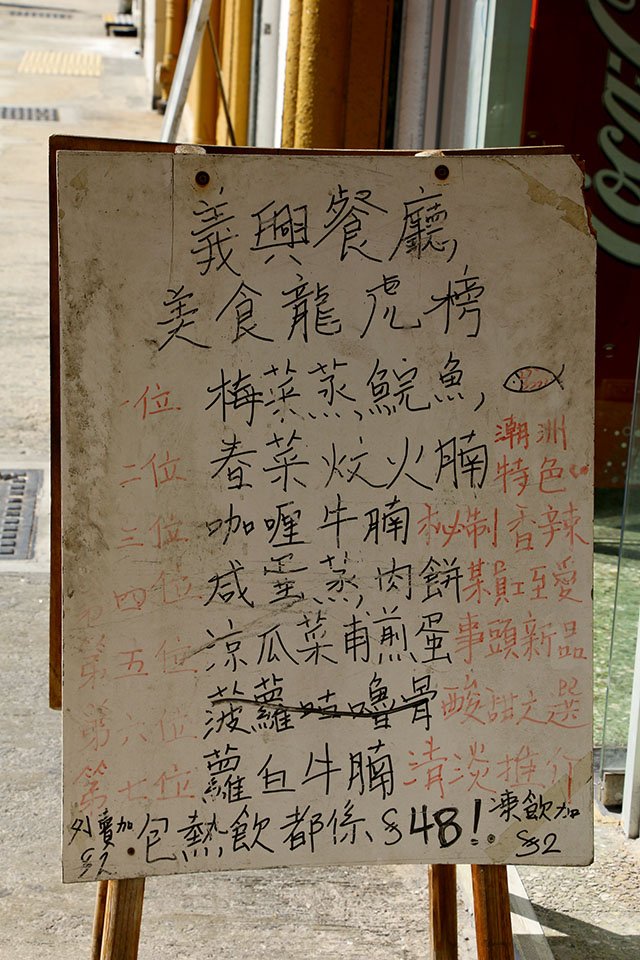 Coca-Cola
義興餐廳,
美食龍虎榜
一位 梅菜蒸鯇魚,
二位 春菜炆火腩 潮洲特色
三位 咖喱牛腩 秘制香辣
四位 咸蛋蒸肉餅 某員工至愛
第五位 涼瓜菜甫煎蛋 事頭新品
第六位 菠蘿咕嚕骨 酸甜之選
第七位 蘿白牛腩 清淡推介
外賣加$2 包熱飲都係$48! 凍飲加$2